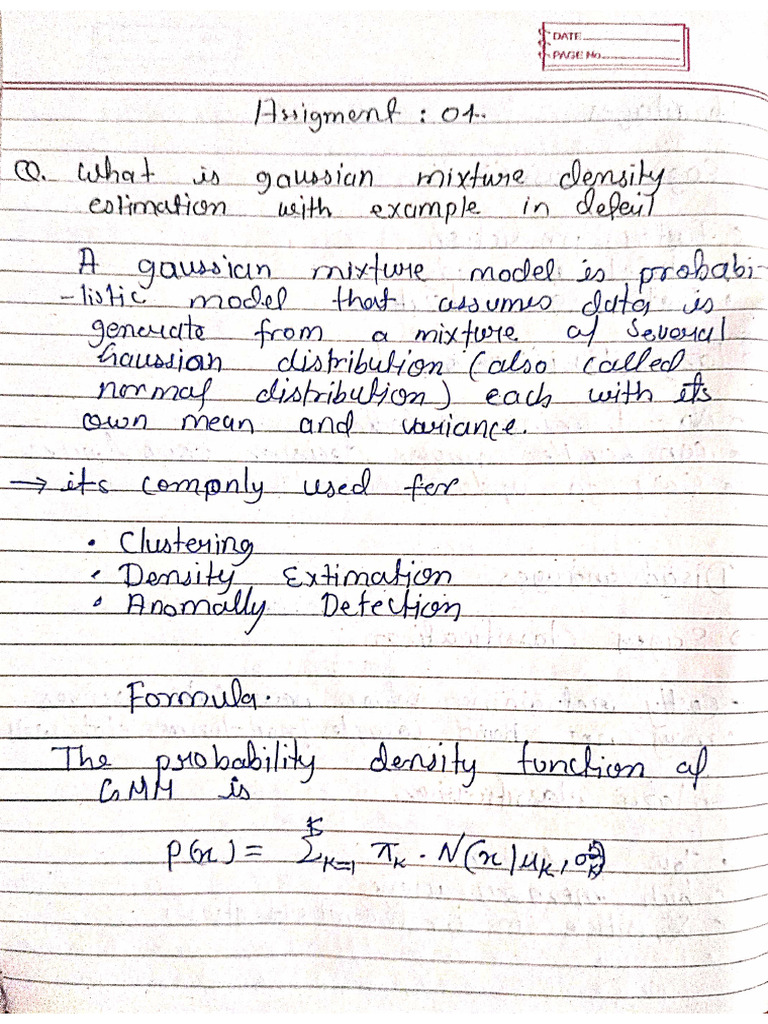 DATE
PAGE No.
Assigment : 01.
Q. What is gaussian mixture density
estimation with example in deteil
A gaussian mixture model is probabi
-listic model that assumes data is
generate from a mixture of several
Gaussian distribution (also called
normal distribution) each with its
own mean and variance.
→ its componly used for
• Clustering
• Density Extimation
• Anomally Detection
Formula.
The probability density function of
GMM is
p(x) = Σ_{k=1}^{K} π_k . N(x|μ_k, σ_k^2)